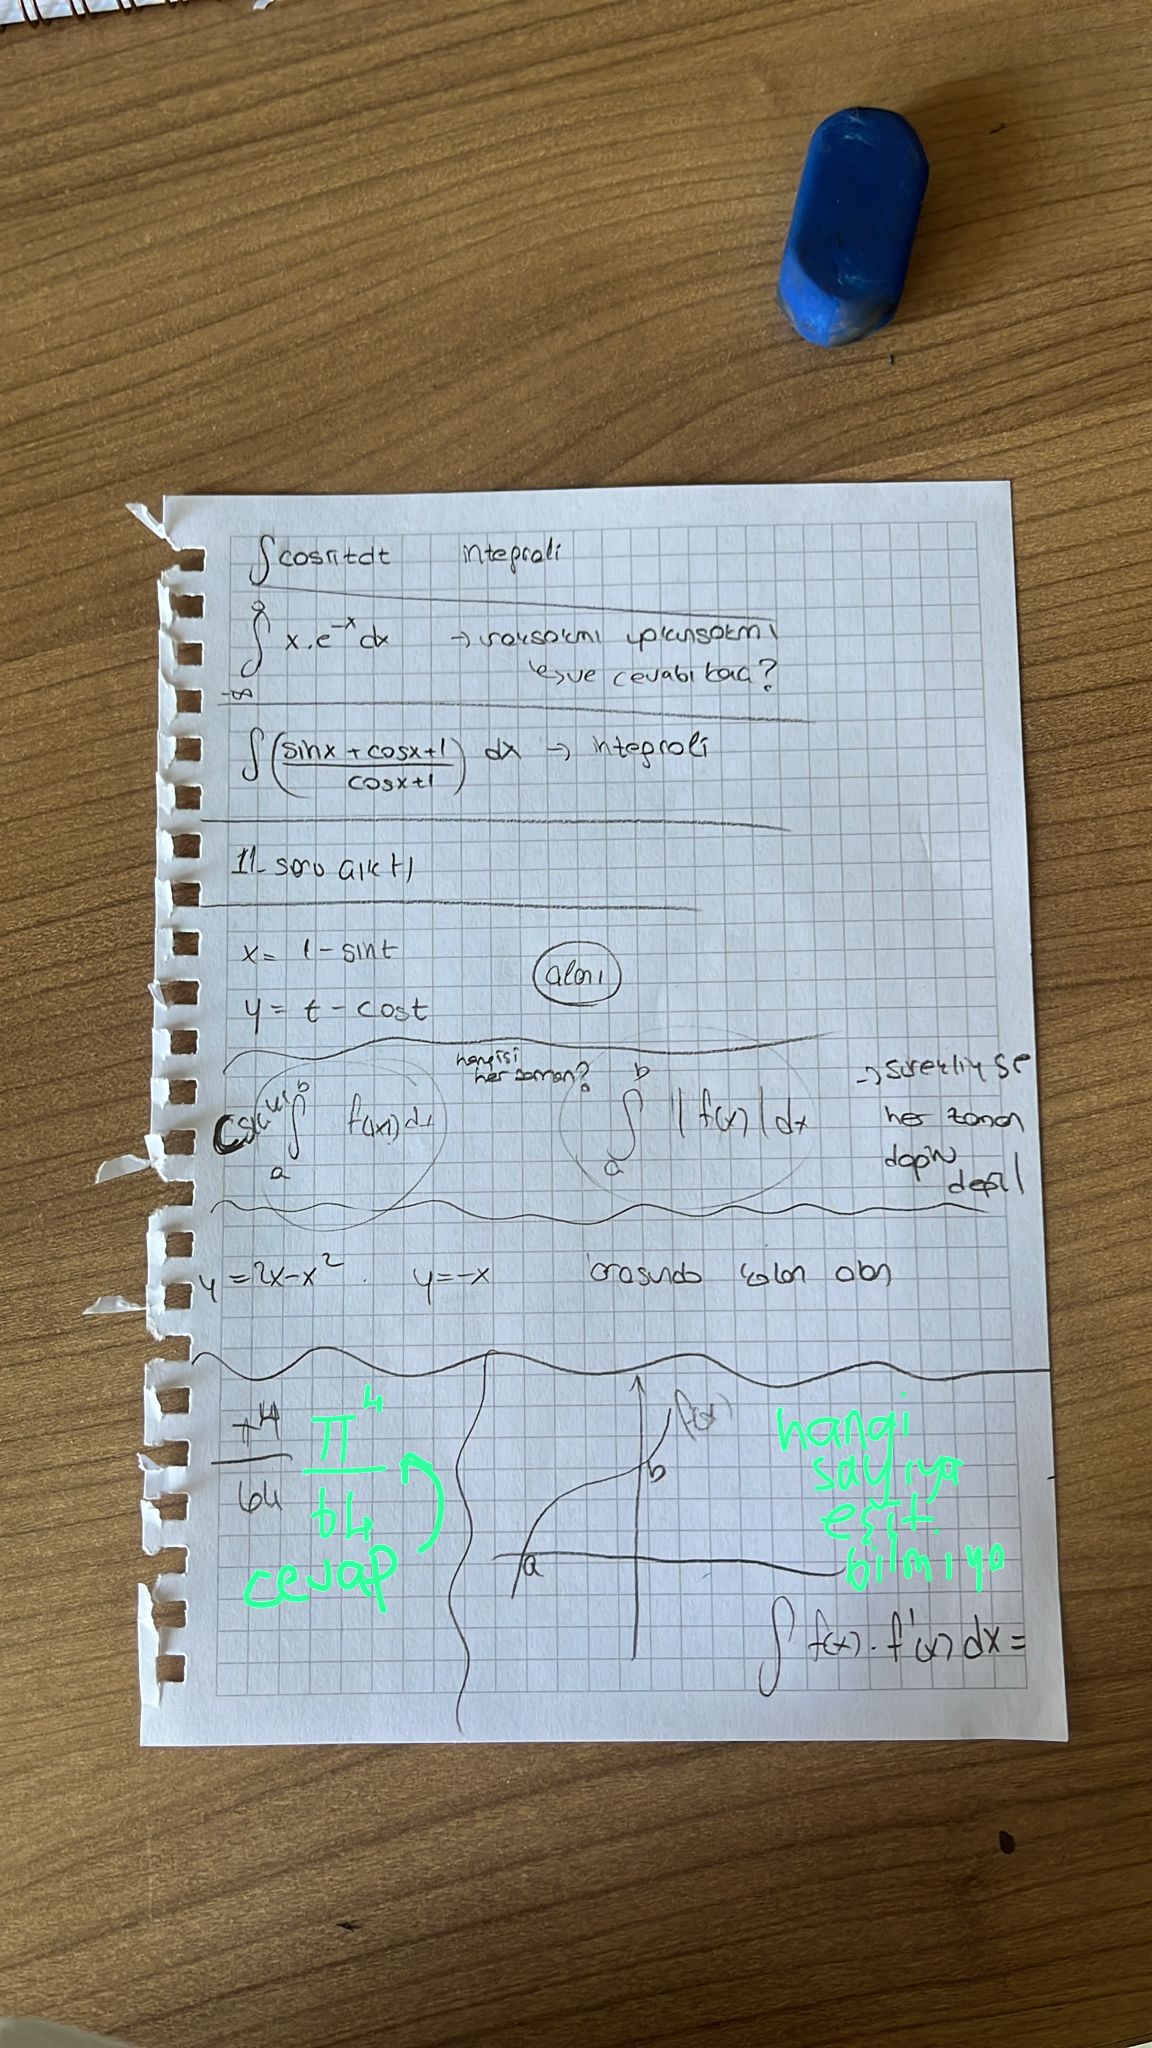 ∫cosπtdt integrali
0
∫ x.e^-x dx → ıraksakmı yakınsakmı
-∞ ve cevabı kaç?
∫(sinx+cosx+1 / cosx+1) dx → integrali
11- soru çıktı
x= 1-sint
alanı
y= t-cost
hangisi
her zaman?
b
∫ f(x)dx
a
b
∫ |f(x)|dx
a
→ sürekliyse
her zaman
doğru
değil
y=2x-x² y=-x arasında kalan alan
π⁴
64
π⁴
64
cevap
f(x)
b
a
hangi
sayıya
eşit.
bilmiyo
∫ f(x).f'(x)dx=